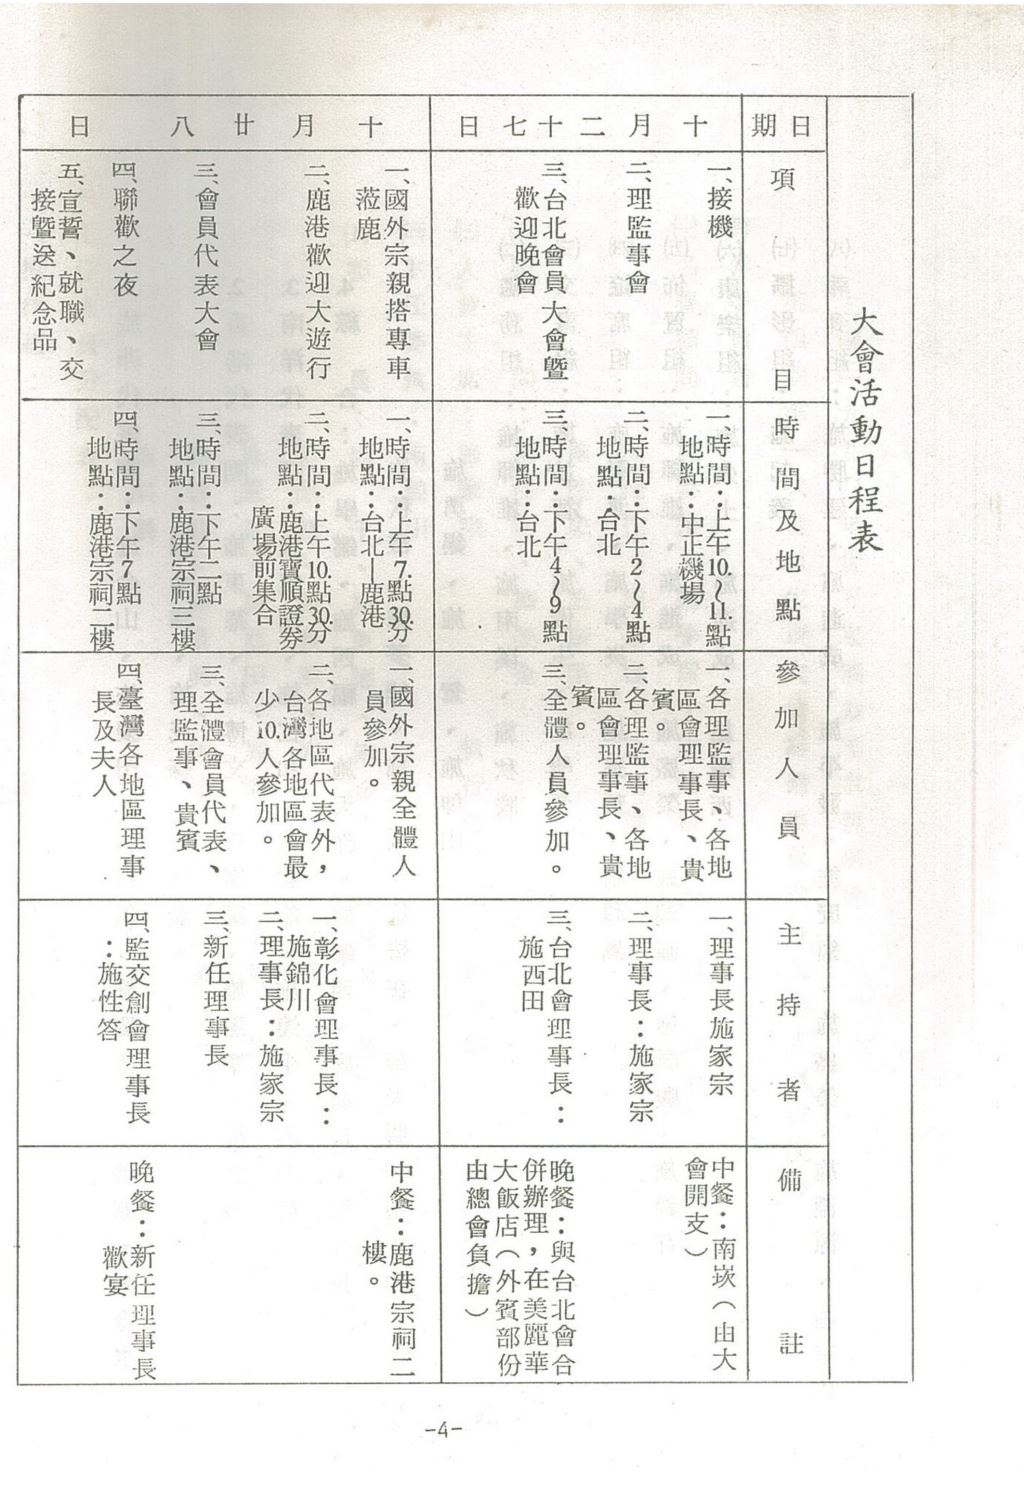 大會活動日程表
日期
項目
時間及地點
參加人員
主持者
備註
十月二十七日
一、接機
二、理監事會
三、台北會員大會暨
歡迎晚會
一、時間：上午10.～11.點
地點：中正機場
二、時間：下午2～4點
地點：台北
三、時間：下午4～9點
地點：台北
一、各理監事、各地
區會理事長、貴
賓。
二、各理監事、各地
區會理事長、貴
賓。
三、全體人員參加。
一、理事長施家宗
二、理事長：施家宗
三、台北會理事長：
施西田
中餐：南崁（由大
會開支）
晚餐：與台北會合
併辦理，在美麗華
大飯店（外賓部份
由總會負擔）
十月廿八日
一、國外宗親搭專車
蒞鹿
二、鹿港歡迎大遊行
三、會員代表大會
四、聯歡之夜
五、宣誓、就職、交
接暨送紀念品
一、時間：上午7.點30.分
地點：台北—鹿港
二、時間：上午10.點30.分
地點：鹿港寶順證券
廣場前集合
三、時間：下午二點
地點：鹿港宗祠三樓
四、時間：下午7點
地點：鹿港宗祠二樓
一、國外宗親全體人
員參加。
二、各地區代表外，
台灣各地區會最
少10.人參加。
三、全體會員代表、
理監事、貴賓
四、臺灣各地區理事
長及夫人
一、彰化會理事長：
施錦川
二、理事長：施家宗
三、新任理事長
四、監交創會理事長
：施性答
中餐：鹿港宗祠二
樓。
晚餐：新任理事長
歡宴
-4-